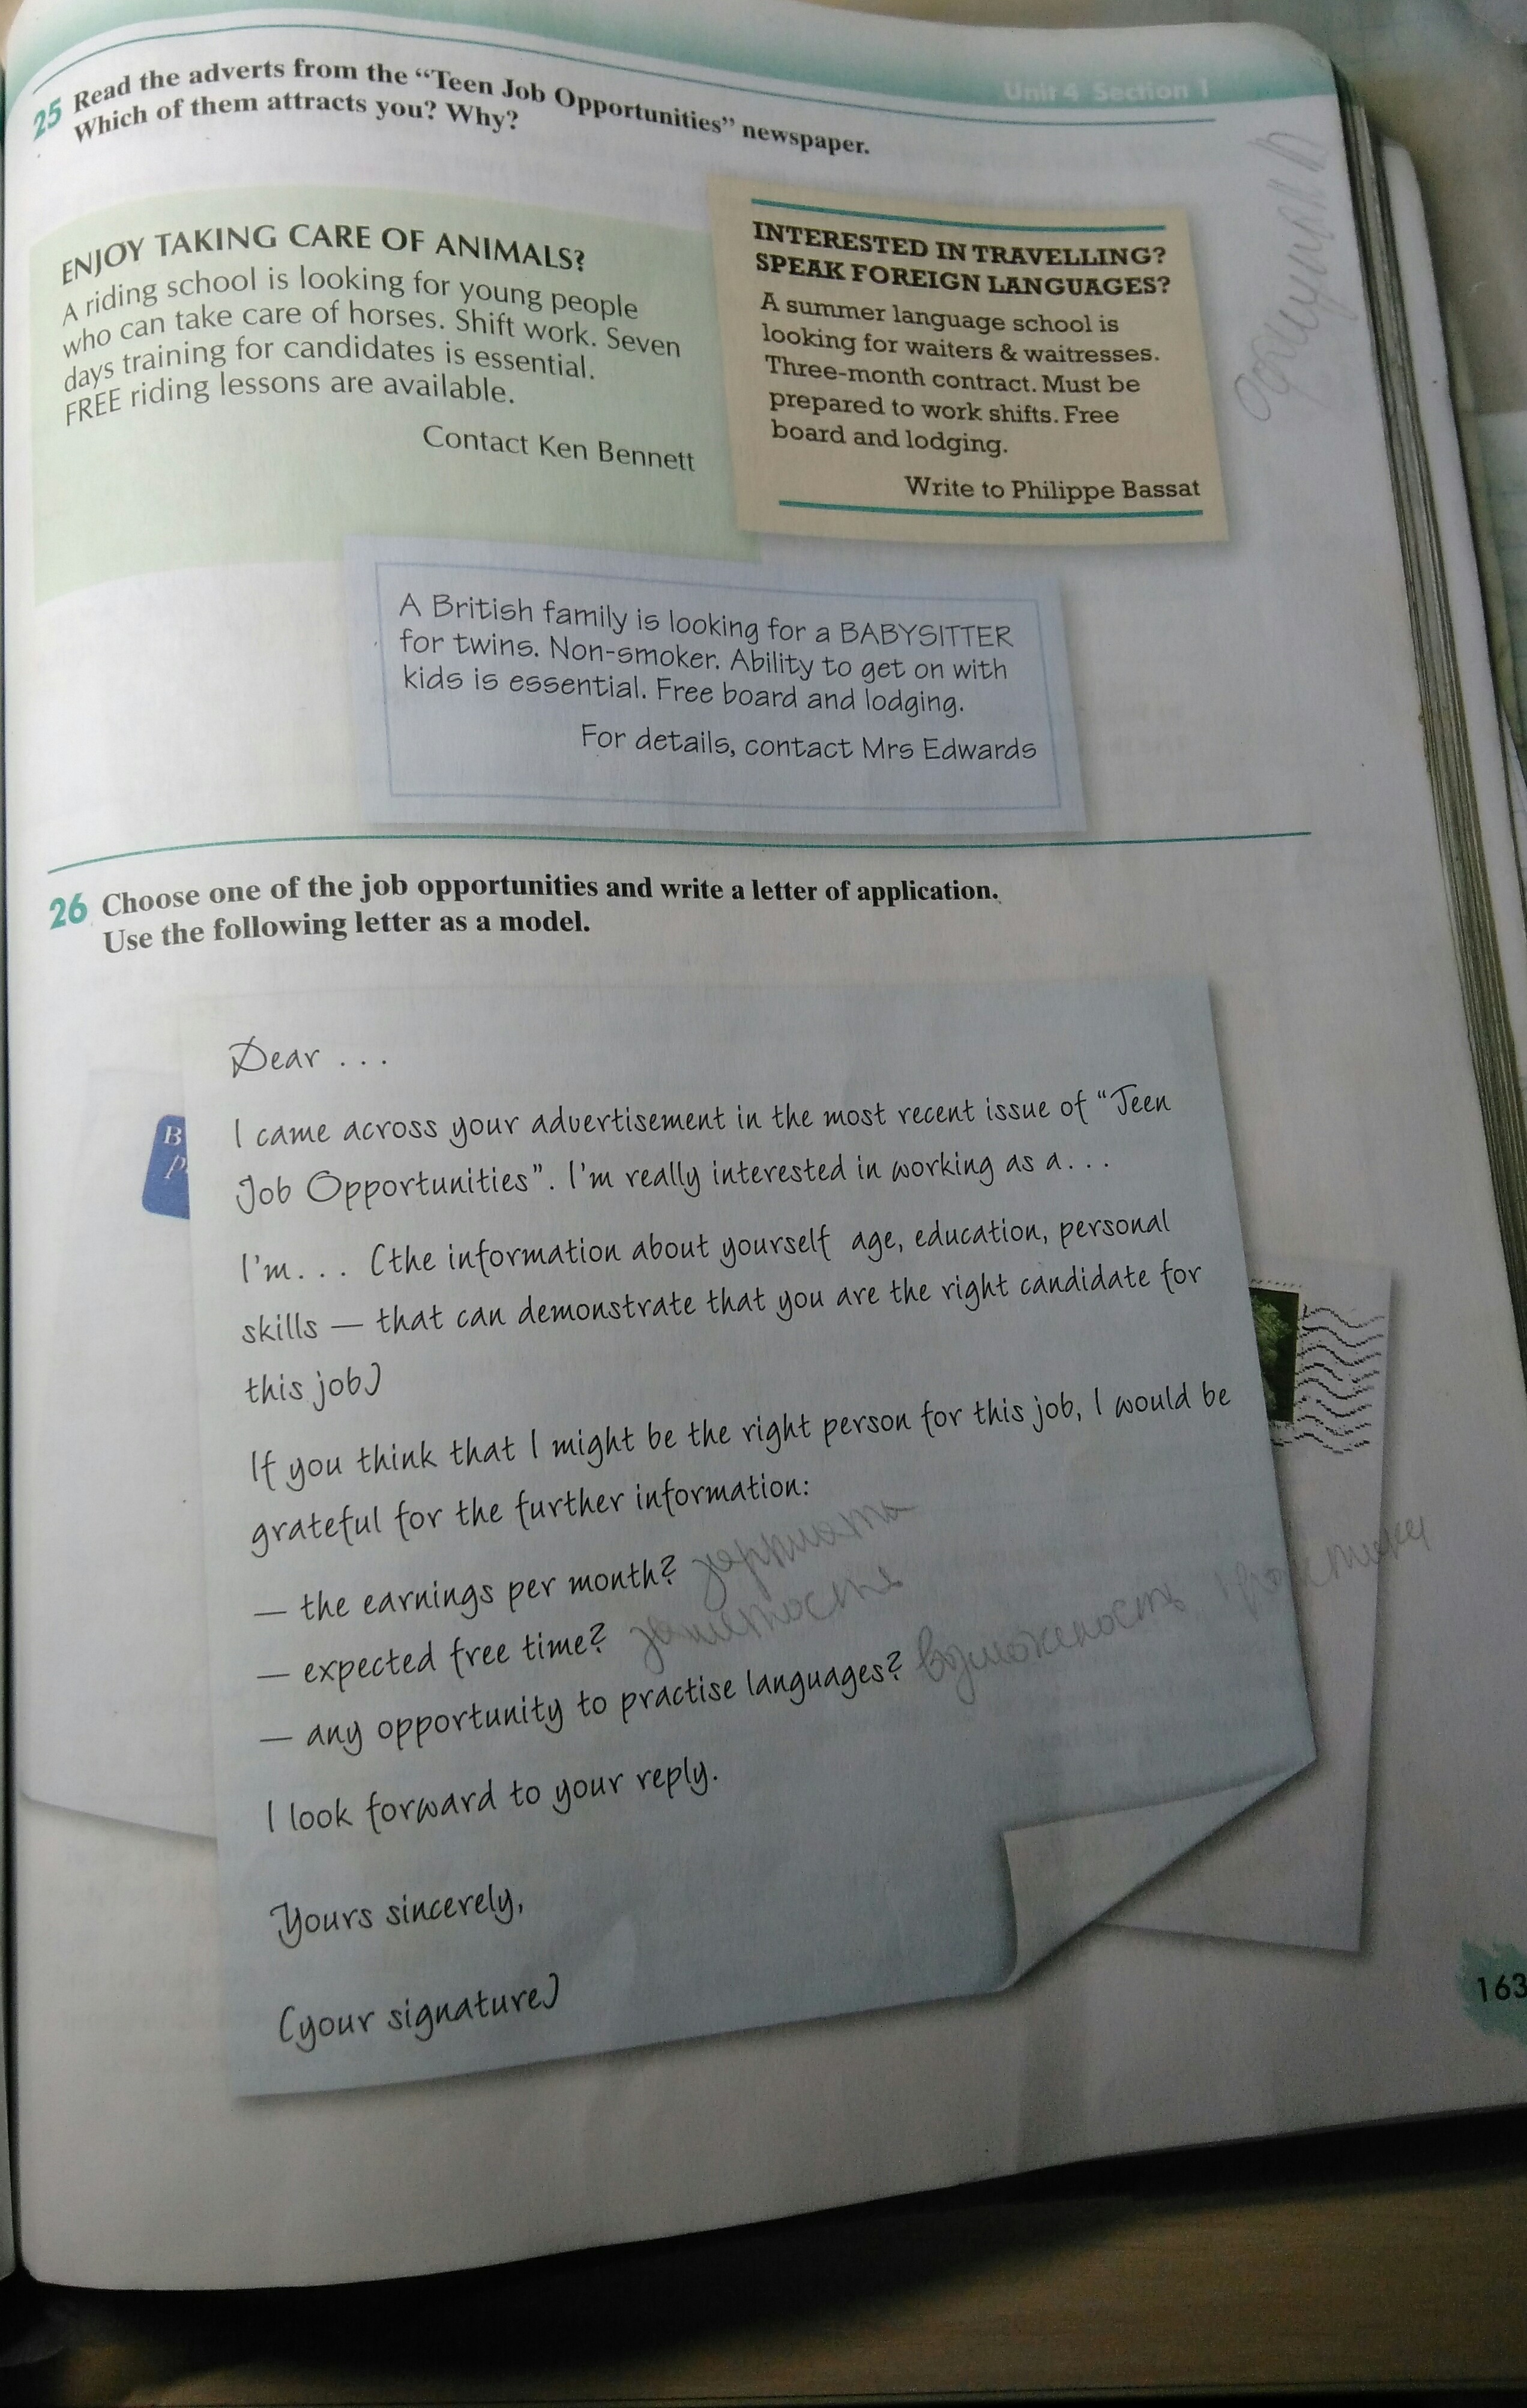 Unit 4 Section 1
25 Read the adverts from the “Teen Job Opportunities” newspaper.
Which of them attracts you? Why?
ENJOY TAKING CARE OF ANIMALS?
A riding school is looking for young people
who can take care of horses. Shift work. Seven
days training for candidates is essential.
FREE riding lessons are available.
Contact Ken Bennett
INTERESTED IN TRAVELLING?
SPEAK FOREIGN LANGUAGES?
A summer language school is
looking for waiters & waitresses.
Three-month contract. Must be
prepared to work shifts. Free
board and lodging.
Write to Philippe Bassat
A British family is looking for a BABYSITTER
for twins. Non-smoker. Ability to get on with
kids is essential. Free board and lodging.
For details, contact Mrs Edwards
26 Choose one of the job opportunities and write a letter of application.
Use the following letter as a model.
Dear . . .
I came across your advertisement in the most recent issue of “Teen
Job Opportunities”. I'm really interested in working as a. . .
I'm. . . (the information about yourself age, education, personal
skills — that can demonstrate that you are the right candidate for
this job)
If you think that I might be the right person for this job, I would be
grateful for the further information:
— the earnings per month? зарплата
— expected free time?
— any opportunity to practise languages?
I look forward to your reply.
Yours sincerely,
(your signature)
B
p
163